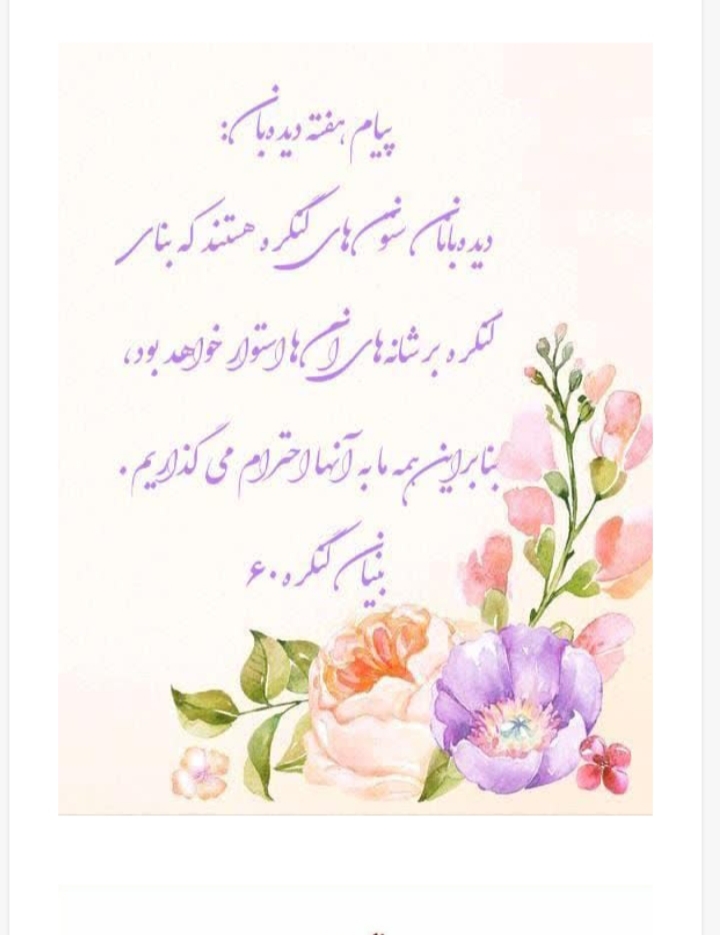 پیام هفته دیده‌بان:
دیده‌بانان ستون‌های کنگره هستند که بنای
کنگره بر شانه‌های آن‌ها استوار خواهد بود،
بنابراین همه ما به آنها احترام می گذاریم.
بنیان کنگره ۶۰